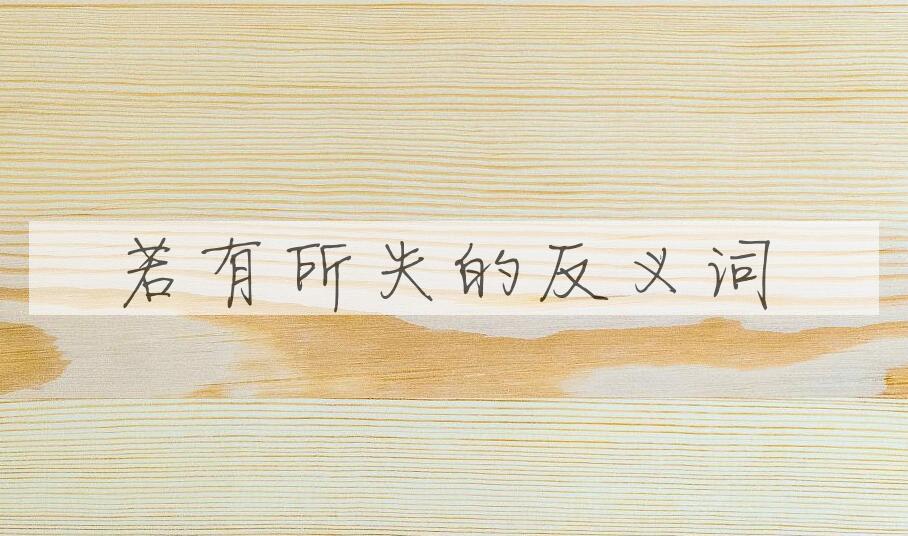 若有所失的反义词